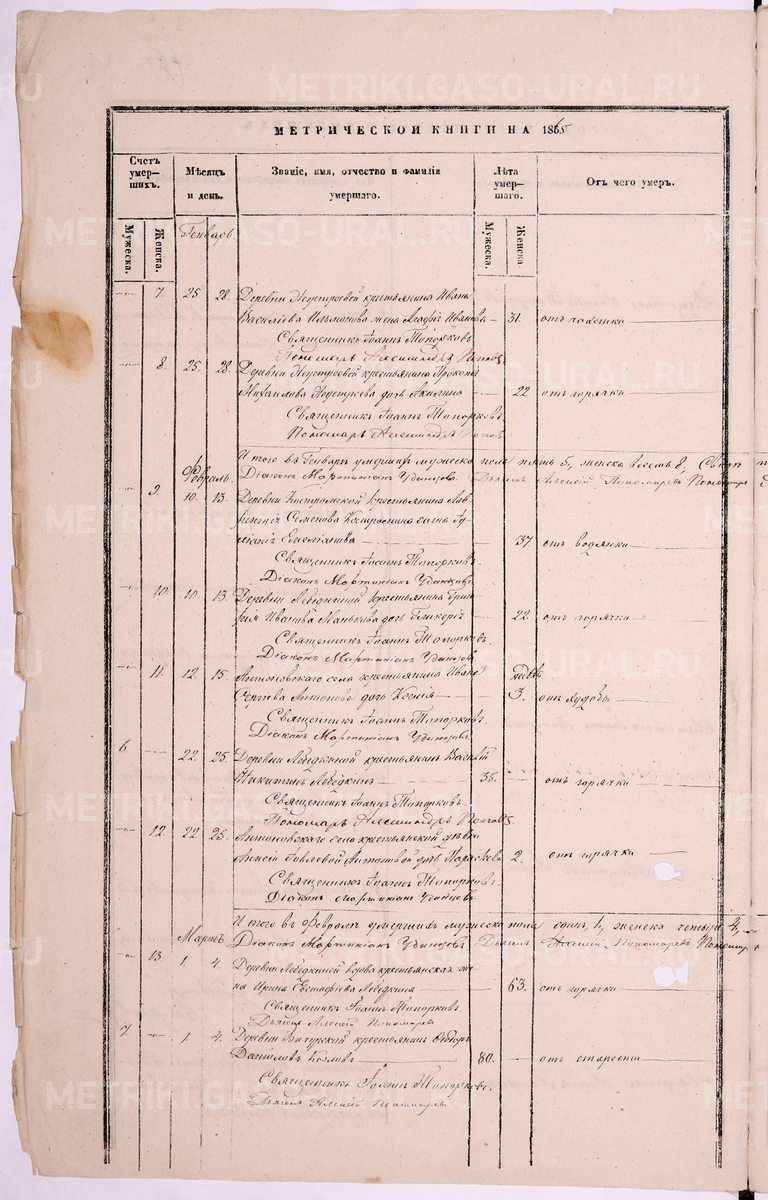 МЕТРИЧЕСКОЙ КНИГИ НА 1865
Счетъ умершихъ.
Мѣсяцъ и день.
Званіе, имя, отчество и фамилія умершаго.
Лѣта умершаго.
Отъ чего умеръ.
Мужеска. Женска. Генварь. Мужеска. Женска.
7. 25. 28. Деревни крестьянина Ивана
Васильева жена Иванова 31. отъ чахотки
Священникъ Іоаннъ Топорковъ
Пономарь Александръ Поповъ
8. 25. 28. Деревни крестьянина
Михаилова дочь Акилина 22 отъ горячки
Священникъ Іоаннъ Топорковъ
Пономарь Александръ Поповъ
Итого въ Генварѣ умершихъ мужеска пола пять 5, женска восемь 8, Свящ
Февраль. Діаконъ Мартиніанъ Удинцовъ. Дьячекъ Алексѣй Пономаревъ Пономарь
9. 10. 13. Деревни Костромской крестьянина
Семенова
Емельянова 37. отъ водянки
Священникъ Іоаннъ Топорковъ.
Діаконъ Мартиніанъ Удинцовъ
10. 10. 13. Деревни Лебедкиной крестьянина
Иванова Манькова дочь Гликерія 22. отъ горячки
Священникъ Іоаннъ Топорковъ.
Діаконъ Мартиніанъ Удинцовъ.
11. 12. 15. Антоновскаго села крестьянина Ивана недѣль
Сергѣева Антонова дочь Ксенія 3. отъ худобы
Священникъ Іоаннъ Топорковъ.
Діаконъ Мартиніанъ Удинцовъ.
6. 22. 25. Деревни Лебедкиной крестьянинъ Василій
Никитинъ Лебедкинъ 35. отъ горячки
Священникъ Іоаннъ Топорковъ.
Пономарь Александръ Поповъ.
12. 22. 25. Антоновскаго села крестьянской дѣвки
Антоновой дочь Параскева 2. отъ горячки
Священникъ Іоаннъ Топорковъ.
Діаконъ Мартиніанъ Удинцовъ.
Итого въ Февралѣ умершихъ мужеска пола одинъ, 1, женска четыре 4,
Мартъ. Діаконъ Мартиніанъ Удинцовъ Дьячекъ Алексѣй Пономаревъ Пономарь
13. 1. 4. Деревни Лебедкиной вдова крестьянская же-
на Ирина Евстафіева Лебедкина 63. отъ горячки
Священникъ Іоаннъ Топорковъ.
Дьячекъ Алексѣй Пономаревъ
7. 1. 4. Деревни Бичурской крестьянинъ Ѳедоръ
Даниловъ Козловъ 80. отъ старости
Священникъ Іоаннъ Топорковъ.
Дьячекъ Алексѣй Пономаревъ
METRIKI.GASO-URAL.RU